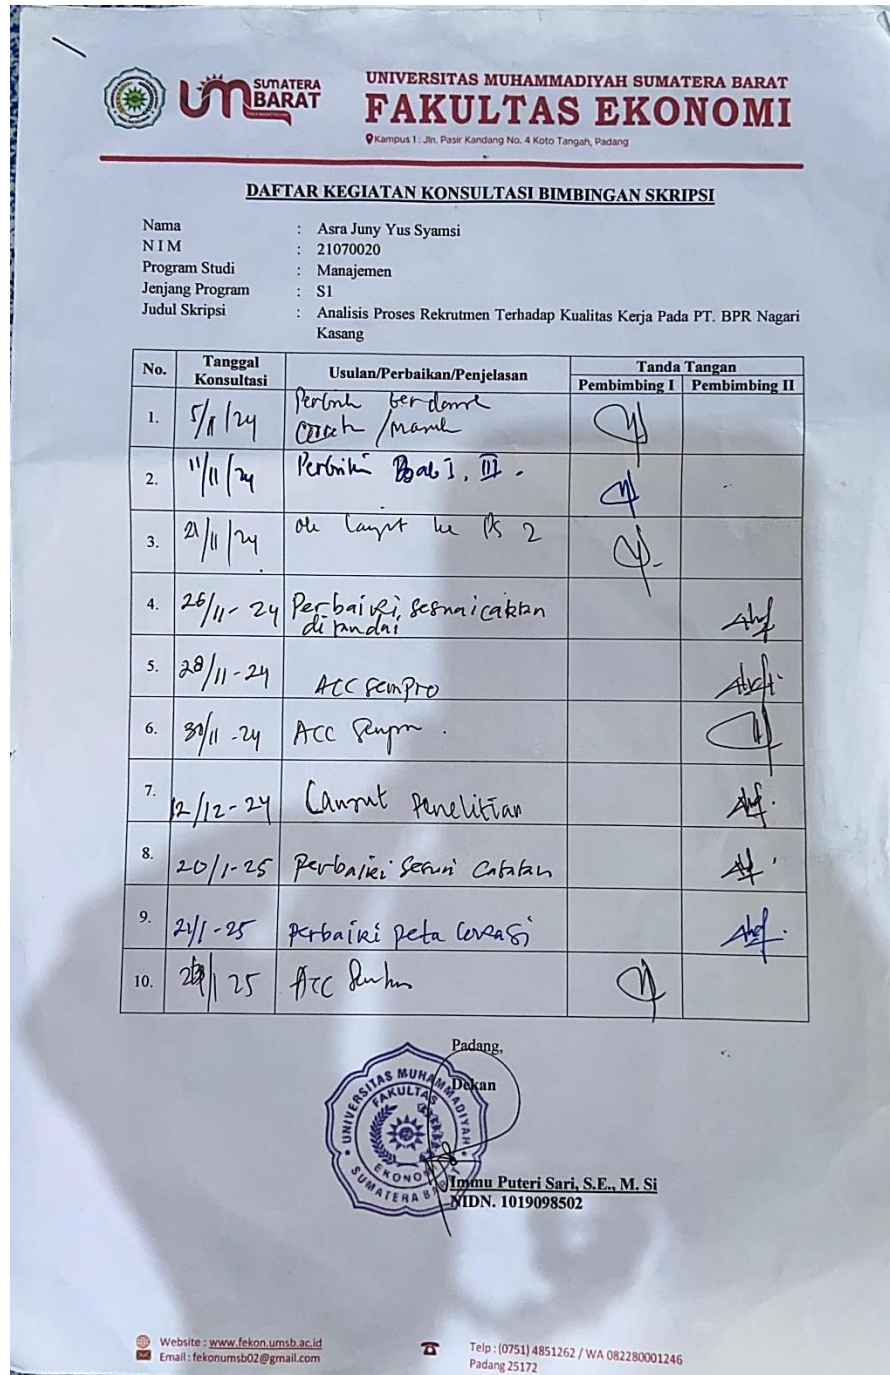 UM SUMATERA BARAT
UNIVERSITAS MUHAMMADIYAH SUMATERA BARAT
FAKULTAS EKONOMI
Kampus 1 : Jln. Pasir Kandang No. 4 Koto Tangah, Padang
DAFTAR KEGIATAN KONSULTASI BIMBINGAN SKRIPSI
Nama : Asra Juny Yus Syamsi
N I M : 21070020
Program Studi : Manajemen
Jenjang Program : S1
Judul Skripsi : Analisis Proses Rekrutmen Terhadap Kualitas Kerja Pada PT. BPR Nagari
Kasang
No. Tanggal Konsultasi Usulan/Perbaikan/Penjelasan Tanda Tangan
Pembimbing I Pembimbing II
1. 5/11/24
2. 11/11/24 Bab I, III.
3. 21/11/24 ke 2
4. 26/11-24 Perbaiki,
5. 28/11-24 ACC sempro
6. 30/11-24 ACC
7. 12/12-24 Lanjut Penelitian
8. 20/1-25 Perbaiki Catatan
9. 21/1-25 perbaiki peta
10. 25 ACC
Padang,
Dekan
UNIVERSITAS MUHAMMADIYAH
FAKULTAS
EKONOMI
SUMATERA BARAT
Immu Puteri Sari, S.E., M. Si
NIDN. 1019098502
Website : www.fekon.umsb.ac.id
Email : fekonumsb02@gmail.com
Telp : (0751) 4851262 / WA 082280001246
Padang 25172